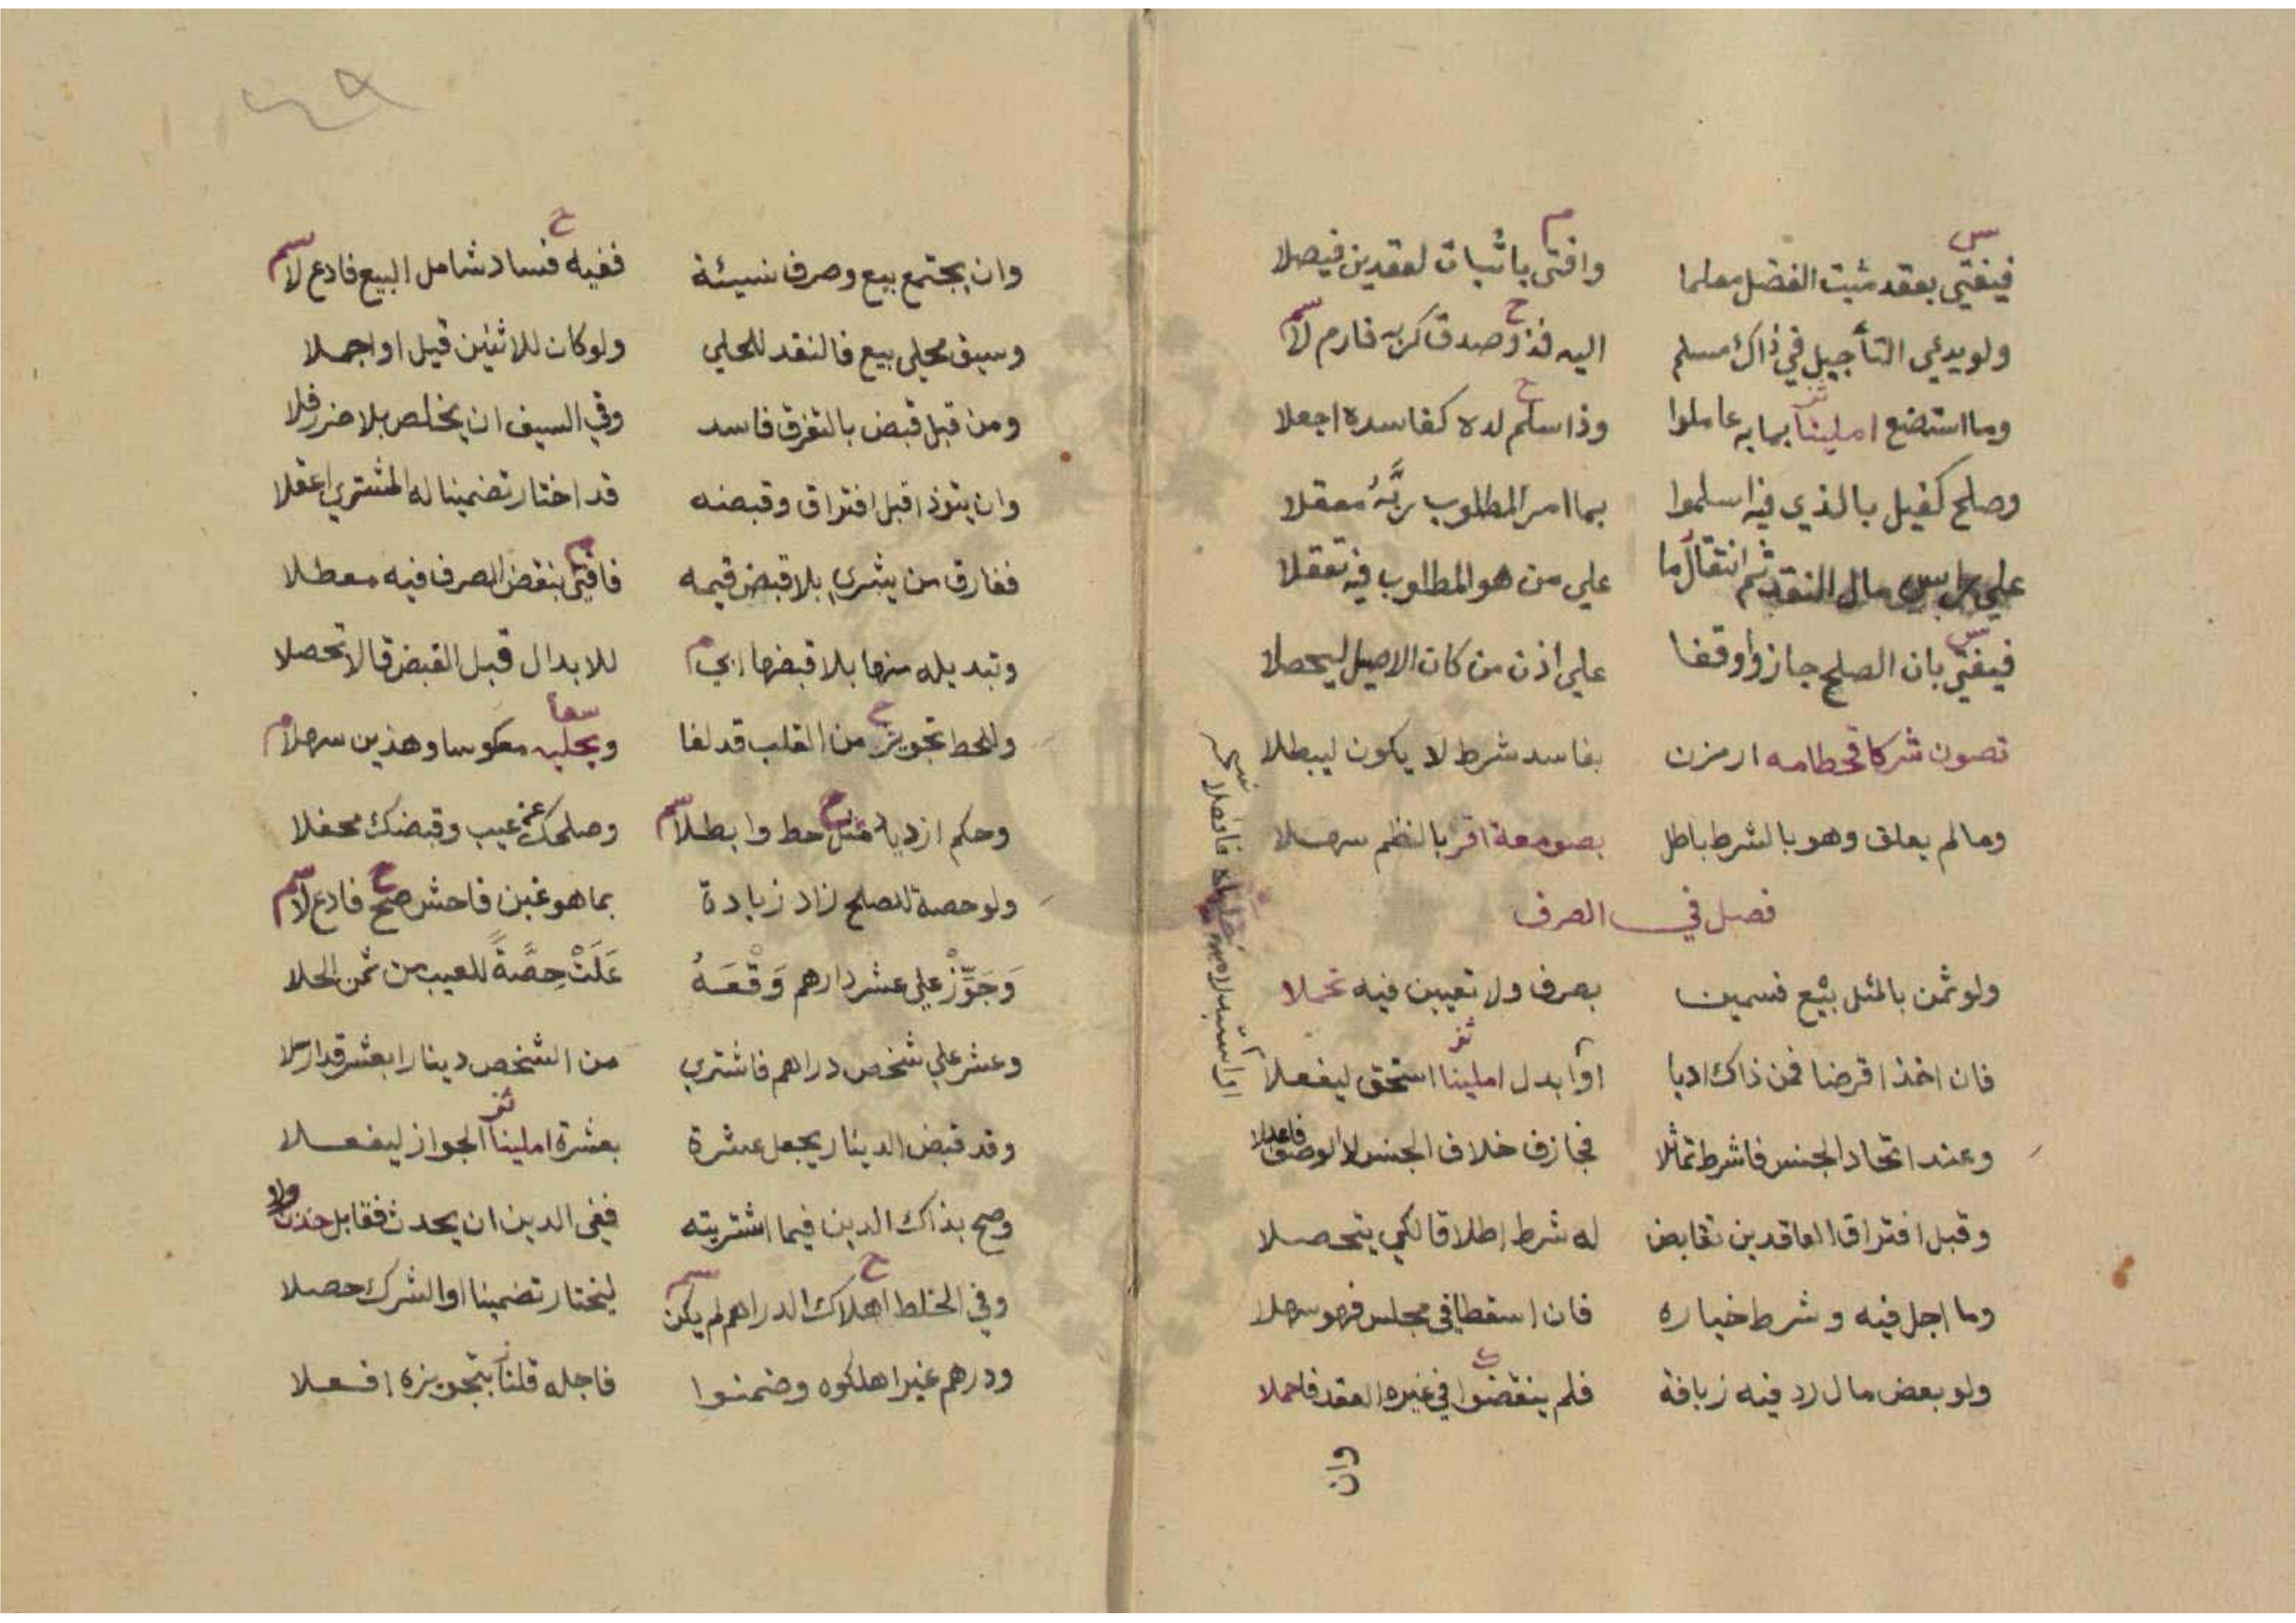 فيفتي بعقد مثبت الفضل معلما وافتى باثبات لعقدين فيصلا
ولو يدعي التأجيل في ذاك مسلم اليه فذو صدق كربه فارم لا
وما استضع املينا بما به عاملوا وذا سلم لده كفاسده اجعلا
وصلح كفيل بالذي فيه اسلموا بما امر المطلوب ربه معقلا
علي راس مال النقد ثم انتقال ما علي من هو المطلوب فيه تعقلا
فيفتي بان الصلح جاز واوقفا علي اذن من كان الاصيل ليحصلا
تصون شركا قحطامه ارمزن بفاسد شرط لا يكون ليبطلا
وما لم يعلق وهو بالشرط باطل بصومعة اقر بالنظم سهلا
فصل في الصرف
ولو ثمن بالمثل بيع فسمين بصرف ولا تعيين فيه تحملا
فان اخذ اقرضا فمن ذاك اديا او ابدل املينا استحق ليفعلا
وعند اتحاد الجنس فاشرط تماثلا فجازف خلاف الجنس لا الوصف فاعدلا
وقبل افتراق العاقدين تقابض له شرط اطلاقا لكي يتحصلا
وما اجل فيه وشرط خياره فان اسقطا في مجلس فهو سهلا
ولو بعض مال رد فيه زيافة فلم ينقضوا في غيره العقد فاحملا
وان
٤٩
وان يجتمع بيع وصرف نسيئة ففيه فساد شامل البيع فادع لا
وسيف محلي بيع فالنقد للحلي ولو كان للاثنين قيل او اجملا
ومن قبل قبض بالتفرق فاسد وفي السيف ان يخلص بلا ضرر فلا
وان يتوذ اقبل افتراق وقبضه قد اختار تضمينا له المشتري اعقلا
ففارق من يشري بلا قبض قيمه فافتى بنقض الصرف فيه معطلا
وتبديله منها بلا قبضها ابي للابدال قبل القبض قالا تحصلا
وللحط تجويز من القلب قد لغا ويحليه معكوسا وهذين سهلا
وحكم ازدياد مثل حط وابطلا وصلحك عن عيب وقبضك محفلا
ولو حصة للصلح زاد زيادة بما هو غبن فاحش صح فادع لا
وَجَوِّزْ علي عشر دارهم وَقْعَهُ عَلَتْ حِصَّةً للعيب من ثمن الحلا
وعشر علي شخص دراهم فاشتري من الشخص دينارا بعشر قد ارسلا
وقد قبض الدينار يجعل عشرة بعشرة املينا الجواز ليفعلا
وصح بذاك الدين فيما اشتريته ففي الدين ان يحدث فقابل خذن ولا
وفي الخلط اهلاك الدراهم لم يكن ليختار تضمينا او الشرك حصلا
ودرهم غير اهلكوه وضمنوا فاجله قلنا بتجويزه افعلا